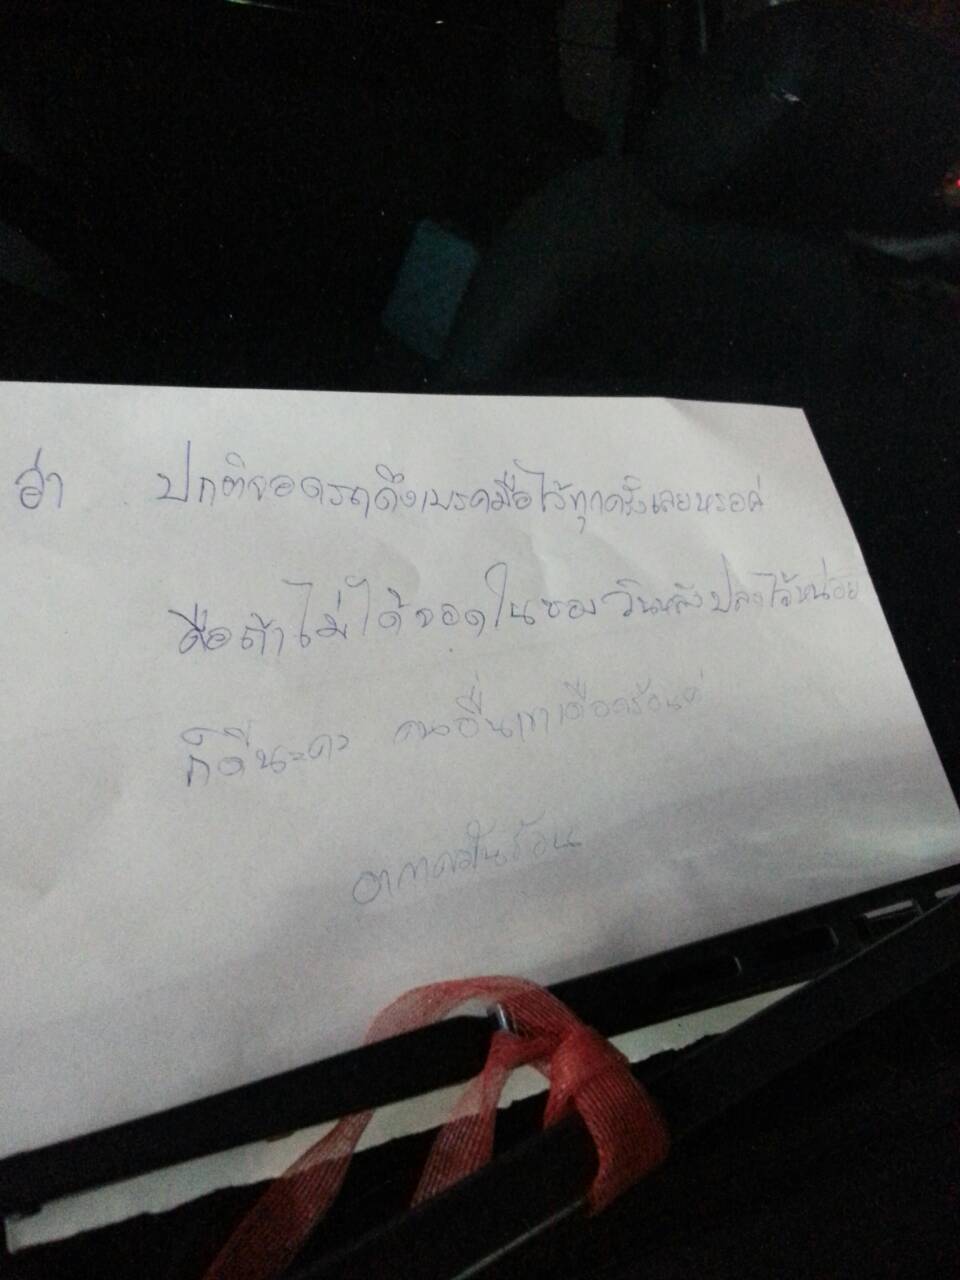 ฮ่า ปกติจอดรถดึงเบรคมือไว้ทุกครั้งเลยหรอค่
คือถ้าไม่ได้จอดในซอง วันหลังปลดไว้หน่อย
ก็ดีนะคะ คนอื่นเขาเดือดร้อนค่
อากาศมันร้อน